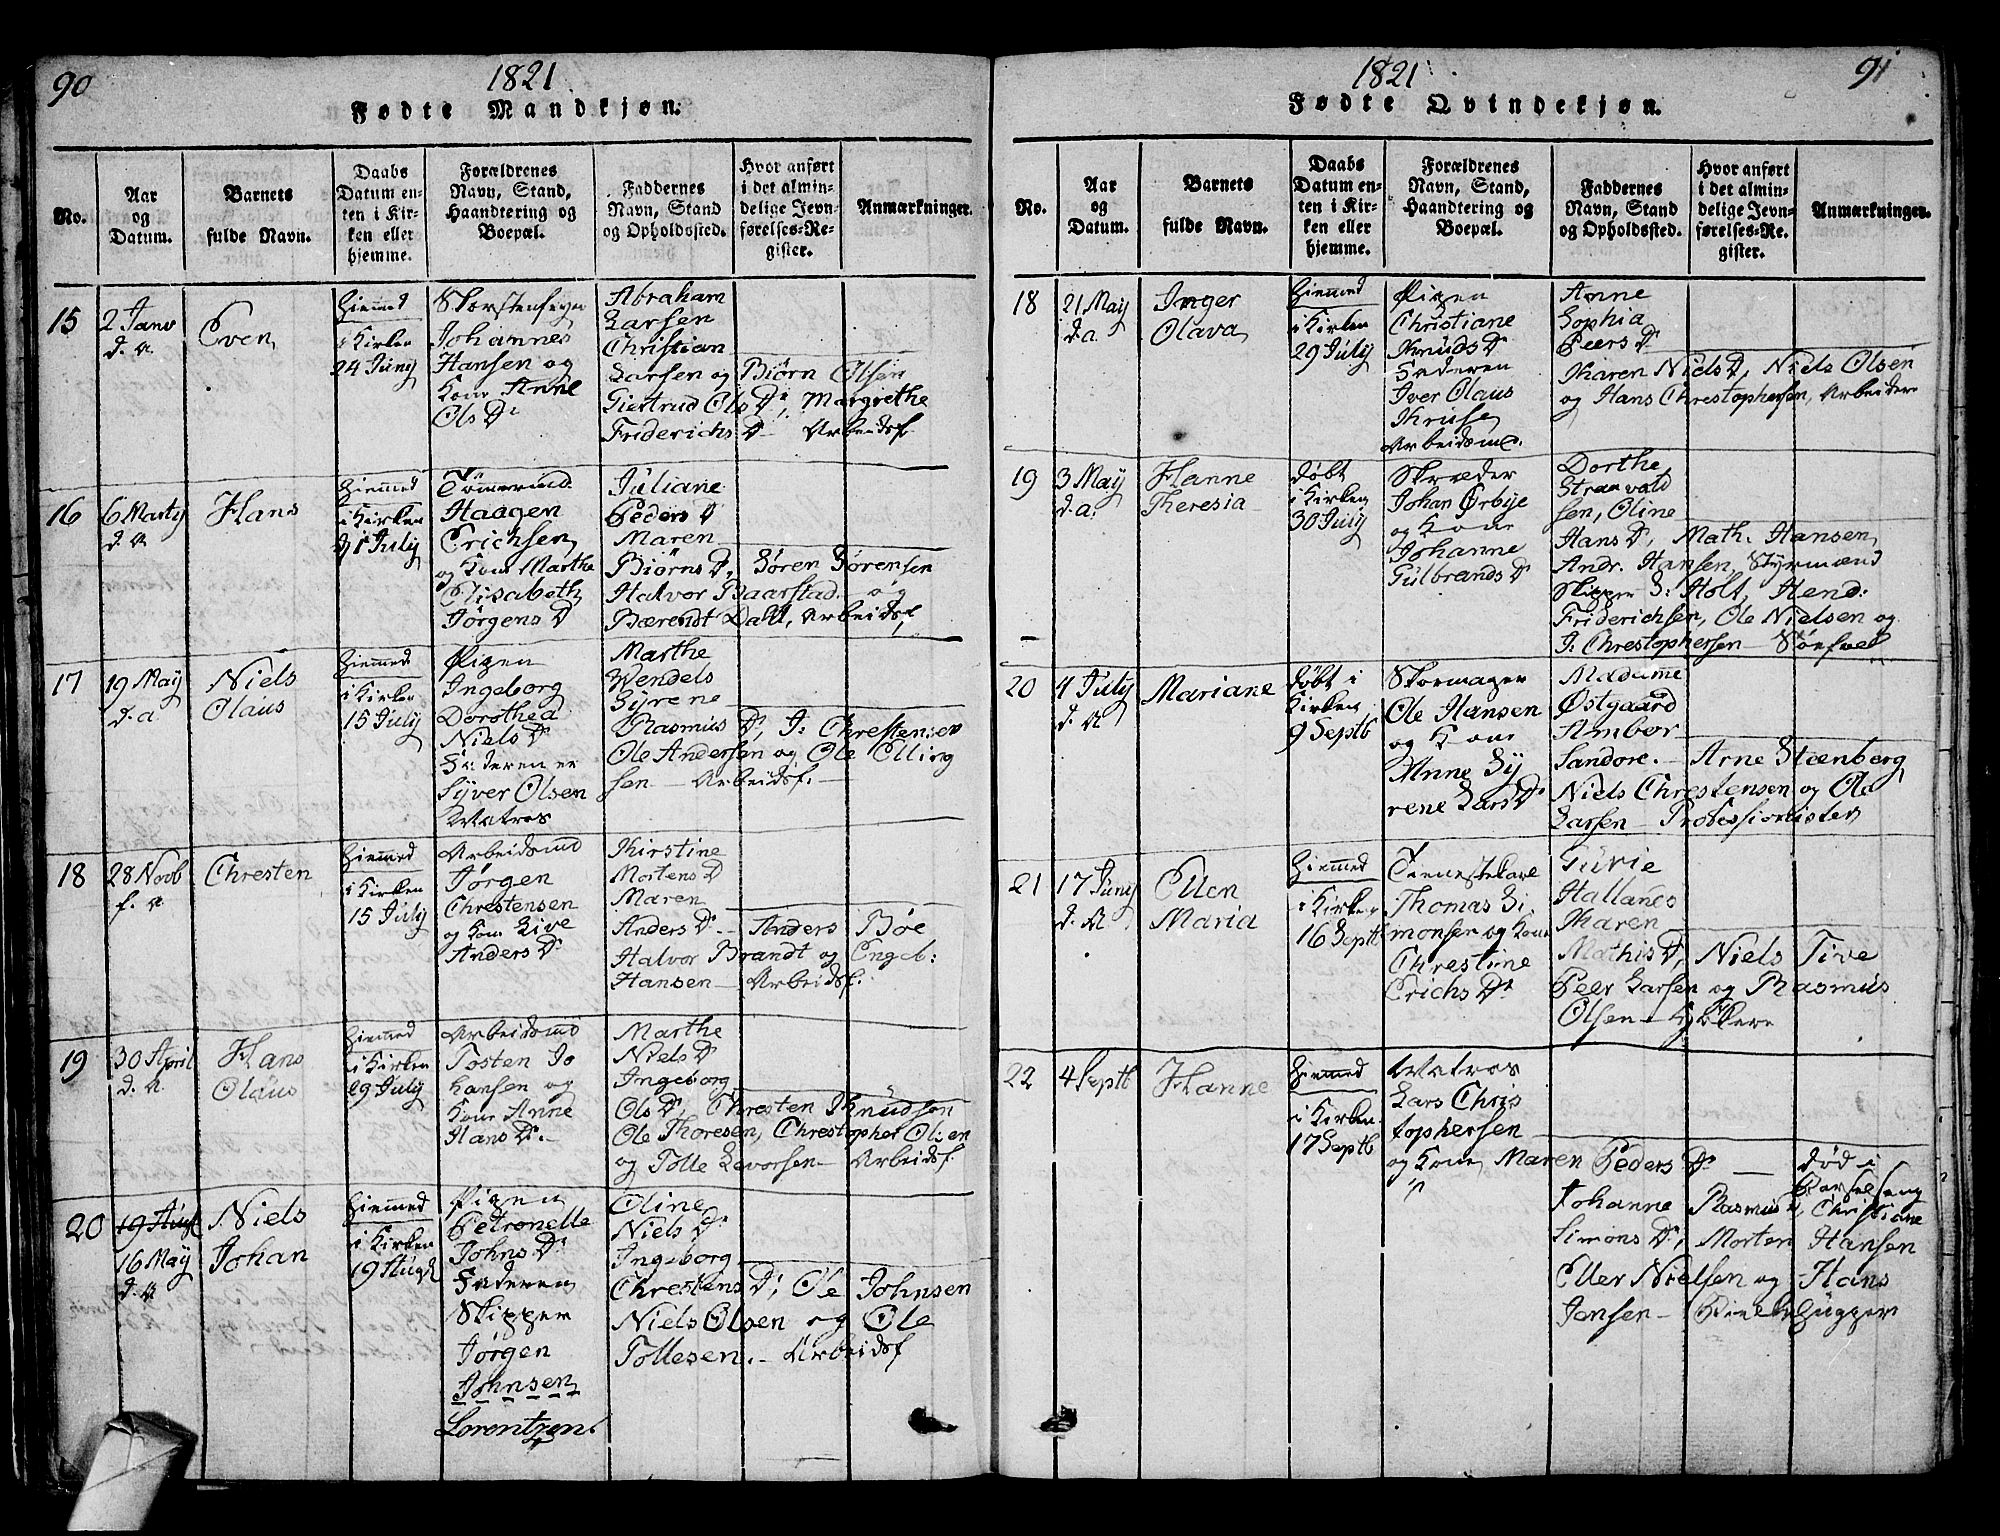 90
1821
Fødte Mandkjøn.
No.
Aar
og
Datum.
Barnets
fulde Navn.
Daabs
Datum en-
ten i Kir-
ken eller
hjemme.
Forældrenes
Navn, Stand,
Haandtering og
Boepæl.
Faddernes
Navn, Stand
og Opholdssted.
Hvor anført
i det almin-
delige Jevn-
førelses-Re-
gister.
Anmærkninger.
15
2 Janv
d. a.
Even
Hiemmed
i Kirken
24 Juny
Skorstensfeyer
Johannes
Hansen og
Kone Anne
Ols D.
Abraham
Larsen
Christian
Larsen og Biørn Olsen
Giertrud Ols D, Margrethe
Friderichs D - Arbeidsf.
16
6 Marty
d. a.
Hans
Hiemmed
i Kirken
1 July
Tömermd.
Haagen
Erichsen
og Kone Marthe
Elisabeth
Jørgens D
Juliane
Peders D
Maren
Biörns D, Sören Sörensen
Halvor Baarstad og
Bærendt Dahl, Arbeidsf.
17
19 May
d. a
Niels
Olaus
Hiemmed
i Kirken
15 July
Pigen
Ingeborg
Dorothea
Niels D
Faderen er
Syver Olsen
Matros
Marthe
Wendels
Syrene
Rasmus D, J: Chrestensen
Ole Andersen og Ole Elling
sen - Arbeidsf.
18
28 Novb
f. a.
Chresten
Hiemmed
i Kirken
15 July
Arbeidsmd
Jørgen
Chrestensen
og Kone Live
Anders D
Kirstine
Mortens D
Maren
Anders D. Anders Bøe
Halvor Brandt og Engeb:
Hansen - Arbeidsf.
19
30 April
d. a.
Hans
Olaus
Hiemmed
i Kirken
29 July
Arbeidsmd
Tosten Jo
hansen og
Kone Anne
Hans D.
Marthe
Niels D
Ingeborg
Ols D, Chresten Knudsen
Ole Thoresen, Chrestopher Olsen
og Tolle Levorsen - Arbeidsf.
20
19 Augt
16 May
d. a
Niels
Johan
Hiemmed
i Kirken
19 Augt
Pigen
Petronelle
Johns D
Faderen
Skipper
Jørgen
Johnsen
Lorentzen.
Oline
Niels D
Ingeborg
Chrestens D, Ole Johnsen
Niels Olsen og Ole
Tollesen. - Arbeidsf
1821
91
Fødte Qvindekjøn.
No.
Aar
og
Datum.
Barnets
fulde Navn.
Daabs
Datum en-
ten i Kir-
ken eller
hjemme.
Forældrenes
Navn, Stand,
Haandtering og
Boepæl.
Faddernes
Navn, Stand
og Opholdssted.
Hvor anført
i det almin-
delige Jevn-
førelses-Re-
gister.
Anmærkninger.
18
21 May
d. a
Inger
Olava
Hiemmed
i Kirken
29 July
Pigen
Christiane
Knuds D
Faderen
Iver Olaus
Kruse
Arbeidsmd.
Anne
Sophia
Peers D
Karen Niels D, Niels Olsen
og Hans Chrestophersen, Arbeidere
19
3 May
d. a.
Hanne
Theresia
Døbt
i Kirken
30 July
Skræder
Johan Ørbye
og Kone
Johanne
Gulbrands D
Dorthe
Stranvold
sen, Oline
Hans D, Math. Hansen,
Andr. Hansen, Styrmænd
Skipper S: Holt, Hend:
Friderichsen, Ole Nielsen og
J. Chrestophersen - Søefoel
20
4 July
d. a
Mariane
Døbt i
Kirken
9 Septb
Skomager
Ole Hansen
og Kone
Anne Sy
rene Lars D
Madame
Østgaard
Ambor
Sandore. - Arne Steenberg,
Niels Chrestensen og Ole
Larsen - Professionister
21
17 Juny
d. a.
Ellen
Maria
Hiemmed
i Kirken
16 Septb
Tienestekarl
Thomas Si
monsen og Kone
Chrestine
Erichs D
Gurie
Hallanes
Karen
Mathis D, Niels Tive
Peer Larsen og Rasmus
Olsen -
22
4 Septb
Hanne
Hiemmed
i Kirken
17 Septb
Matros
Lars Chris
tophersen
og Kone Maren Peders D -
død i
Barselseng
Johanne Rasmus D, Christiane
Simons D, Morten Hansen
Eller Nielsen og Hans
Jansen -